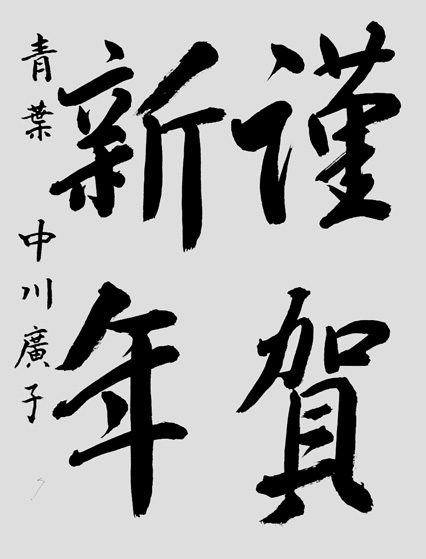 謹賀
新年
青葉 中川廣子